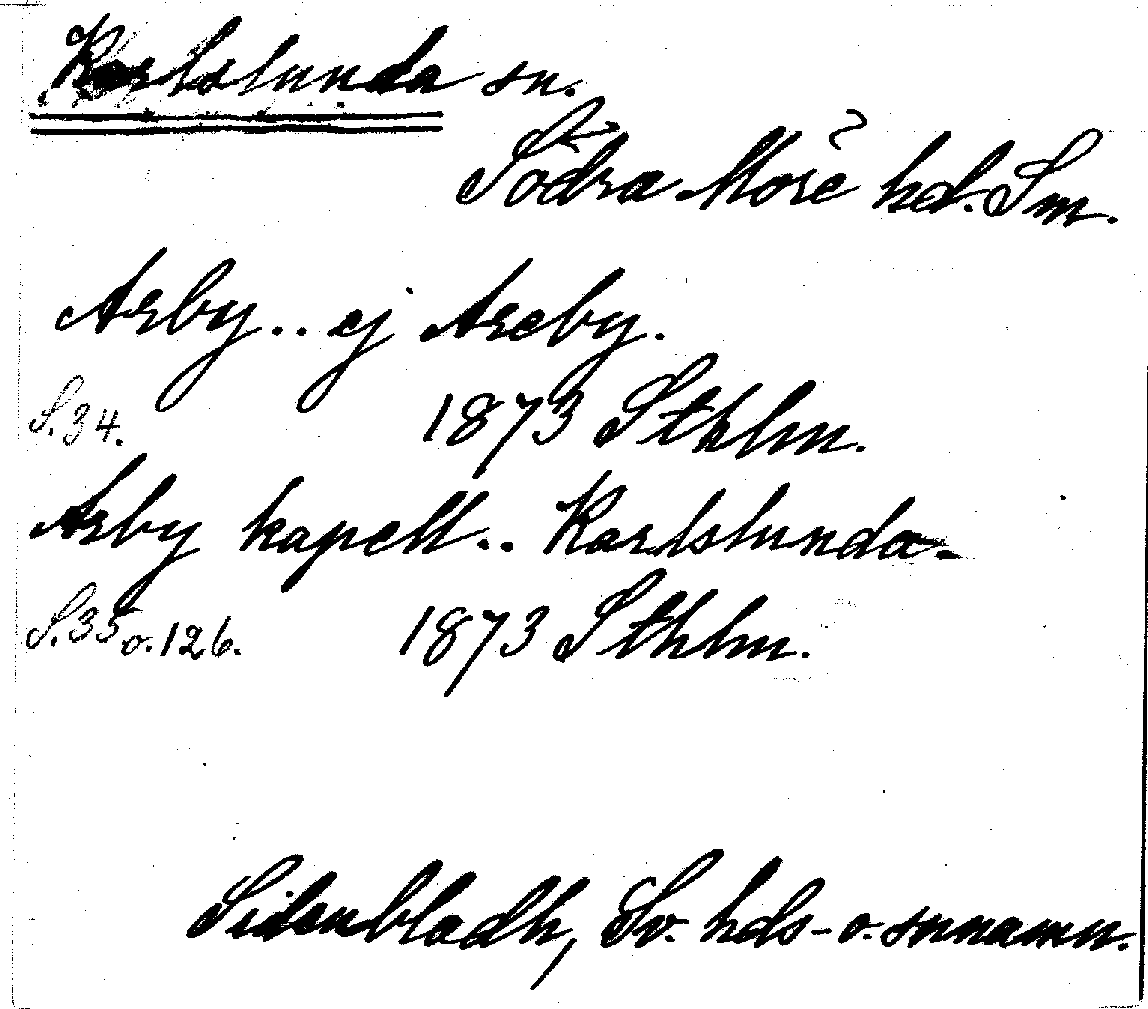 Karlslunda sn.
Södra Möre hd. Sm.
Arby.. ej Areby.
S. 34. 1873 Sthlm.
Arby kapell.. Karlslunda.
S. 35 o. 126. 1873 Sthlm.
Sidenbladh, Sv. hds- o. snnamn.